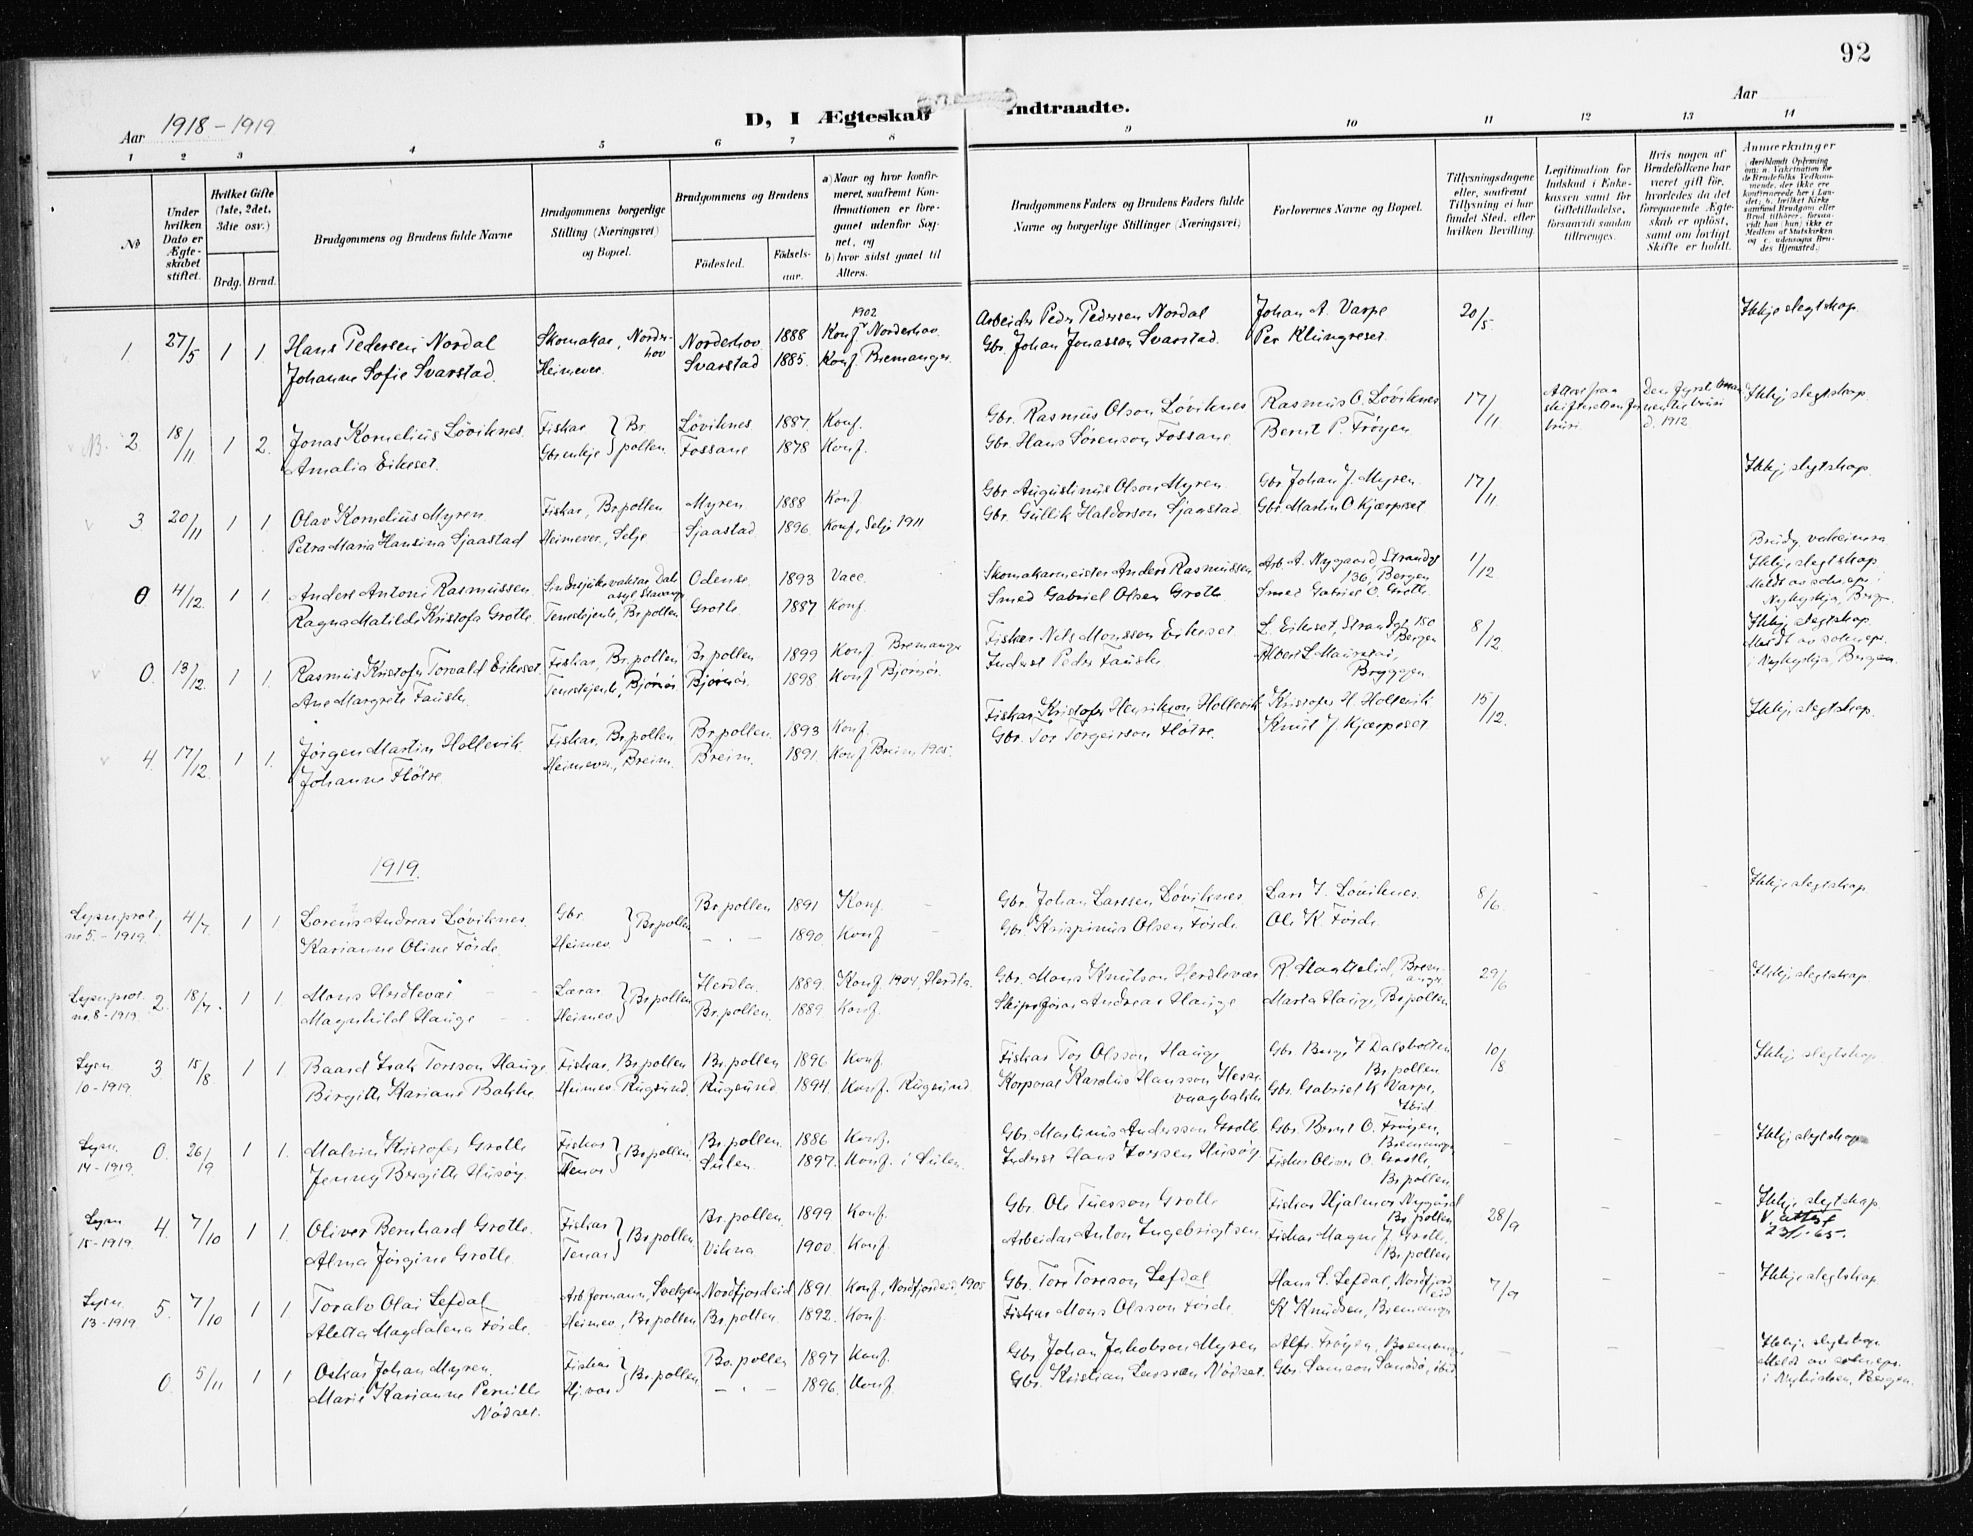 92
Aar 1918-1919
D, I Ægteskab Indtraadte.
Aar
1 2 3 4 5 6 7 8 9 10 11 12 13 14
No
Under hvilken Dato er Ægteskabet stiftet.
Hvilket Gifte (1ste, 2det, 3die osv.)
Brdg. Brud.
Brudgommens og Brudens fulde Navne
Brudgommens borgerlige Stilling (Næringsvei) og Bopæl.
Brudgommens og Brudens
Födested.
Födselsaar.
a) Naar og hvor konfirmeret, saafremt Konfirmationen er foregaaet udenfor Sognet, og
b) hvor sidst gaaet til Alters.
Brudgommens Faders og Brudens Faders fulde Navne og borgerlige Stillinger (Næringsvei)
Forlovernes Navne og Bopæl.
Tillysningsdagene eller, saafremt Tillysning ei har fundet Sted, efter hvilken Bevilling.
Legitimation for Indskud i Enkekassen samt for Giftetilladelse, forsaavidt saadan tiltrænges.
Hvis nogen af Brudefolkene har været gift för, hvorledes da det foregaaende Ægteskab er oplöst, samt om lovligt Skifte er holdt.
Anmærkninger
1. 27/5 1 1. Hans Pedersen Nordal Skomakar, Norderhov Norderhov 1888 Konf. 1902 Norderhov Arbeider Peder Pedersen Nordal Johan A. Varpe 20/5 Ikkje slegtskap.
Johanne Sofie Svarstad. Heimever. Svarstad 1885. Konf. Bremanger. Gbr. Johan Jonasson Svarstad. Per Klungreset.
2. 18/11 1 2. Jonas Kornelius Løviknes. Fiskar Br.pollen Løviknes 1887. Konf. Gbr. Rasmus Olson Løviknes Rasmus O. Løviknes 17/11. Ikkje slegtskap.
Amalia Eikeset. Gbr.enkje Fossane 1878 Konf. Gbr. Hans Sørenson Fossane. Bernt P. Frøyen. d. 1912
3 20/11 1 1. Olav Kornelius Myren Fiskar, Br.pollen Myren 1888 Konf Gbr Augustinus Olson Myren Gbr Johan J. Myren. 17/11. Ikkje slegtskap.
Petra Maria Hansina Sjaastad Heimever, Selje Sjaastad 1896 Konf, Selje 1911 Gbr. Gullik Haldorson Sjaastad Gbr. Martin O Kjærpeset
0 4/12. 1 1. Anders Antoni Rasmussen Odense 1893 Vacc. Skomakarmeister Anders Rasmussen Arb. A. Nygaard, Strandgt 136, Bergen 1/12 Ikkje slegtskap
Ragna Matilde Kristofa Grotle. Tenestjente, Br.pollen Grotle 1887 Konf. Smed Gabriel Olsen Grotle Smed Gabriel O. Grotle.
0. 13/12. 1 1. Rasmus Kristofer Torvald Eikeset Fiskar, Br.pollen Br.pollen 1899 Konf Bremanger Fiskar Nils Monsson Eikeset. L. Eikeset, Strandgt 180 Bergen 8/12 Ikkje slegtskap
Ane Margrete Fauske Tenestjente, Bjørnør Bjørnør 1898 Konf Bjørnør. Inderst Peder Fauske Bryggen. i Nykyrkja, Bergen.
4. 17/12. 1 1. Jørgen Martin Hollevik. Fiskar, Br.pollen Br.pollen 1893 Konf. Fiskar Kristofer Henrikson Hollevik Kristofer H. Hollevik 15/12. Ikkje slegtskap.
Johanne Flötre Heimever, Breim. Breim. 1891. Konf Breim, 1905. Gbr. Tor Torgeirson Flötre. Knut J. Kjærpeset
1919.
Lysn.prot nr 5. - 1919. 1 4/7. 1 1. Lorens Andreas Løviknes. Gbr. Br.pollen Br.pollen 1891 Konf. Gbr. Johan Larssen Løviknes Lars J. Løviknes. 8/6. Ikkje slegtskap
Karianne Oline Förde. Heimev. - " - 1890 Konf Gbr. Krispinus Olsen Förde Ole K. Förde.
Lysn.prot. nr. 8 - 1919. 2. 18/7. 1 1. Mons Herdlevær Lærar Br.pollen Herdla. 1889 Konf. 1904, Herdla. Gbr. Mons Knutson Herdlevær 29/6 Ikkje slegtskap
Magnhild Hauge Heimev. Br.pollen. 1889 Konf. Skipsförar Andreas Hauge Maria Hauge, Br.pollen
Lysn. 10 - 1919. 3 15/8. 1 1. Baard Isak Torsson Hauge Fiskar. Br.pollen Br.pollen 1896 Konf. Fiskar Tor Olsson Hauge Gbr Berge J Dalsbotten Br.pollen 10/8 Ikkje slegtskap
Birgitte Kariane Bakke. Heimev. Rugsund. Rugsund 1894. Konf. Rugsund. Korporal Karolus Hansson Gbr. Gabriel K Varpe, Ibid
Lysn. 14 - 1919. 0. 26/9 1 1. Malvin Kristofer Grotle Fiskar Br.pollen. Br.pollen. 1886 Konf. Gbr. Martinus Andersson Grotle Gbr. Bernt O. Frøyen, Bremanger Ikkje slegtskap
Jenny Bergitte Husøy. Sulen. 1897. Konf. i Sulen. Inderst Hans Husøy Fiskar Oliver O. Grotle, Br.pollen
Lysn 15 - 1919. 4. 7/10 1 1. Oliver Bernhard Grotle. Fiskar Br.pollen Br.pollen. 1899 Konf. Gbr. Ole Grotle Fiskar Hjalmar Nygård Br.pollen 28/9 Ikkje slegtskap.
Alma Jørgine Grotle Vikna 1900. Konf. Arbeidar Anton Ingebrigtsen Fiskar Magne J. Grotle. Br.pollen V. attest 23/1-65.
Lysn. 13 - 1919 5. 7/10 1 1. Toralv Olai Lefdal Arb.formann, Svelgen Nordfjordeid 1891 Konf, Nordfjordeid, 1905 Gbr. Tore Toreson Lefdal Hans L. Lefdal, Nordfjordeid 7/9 Ikkje slegtskap
Aletta Magdalena Förde. Heimev, Br.pollen Br.pollen. 1892. Konf. Fiskar Mons Olsson Förde. K Knudsen, Bremanger
0. 5/11 1 1. Oskar Johan Myren. Fiskar Br.pollen Br.pollen 1897 Konf. Gbr. Johan Jakobson Myren Alfr. Frøyen, Bremanger Ikkje slegtskap
Marie Karianne Pernille Nödset. - " - 1896. Konf Gbr. Kristian Larsson Nödset. i Nykirken, Bergen.